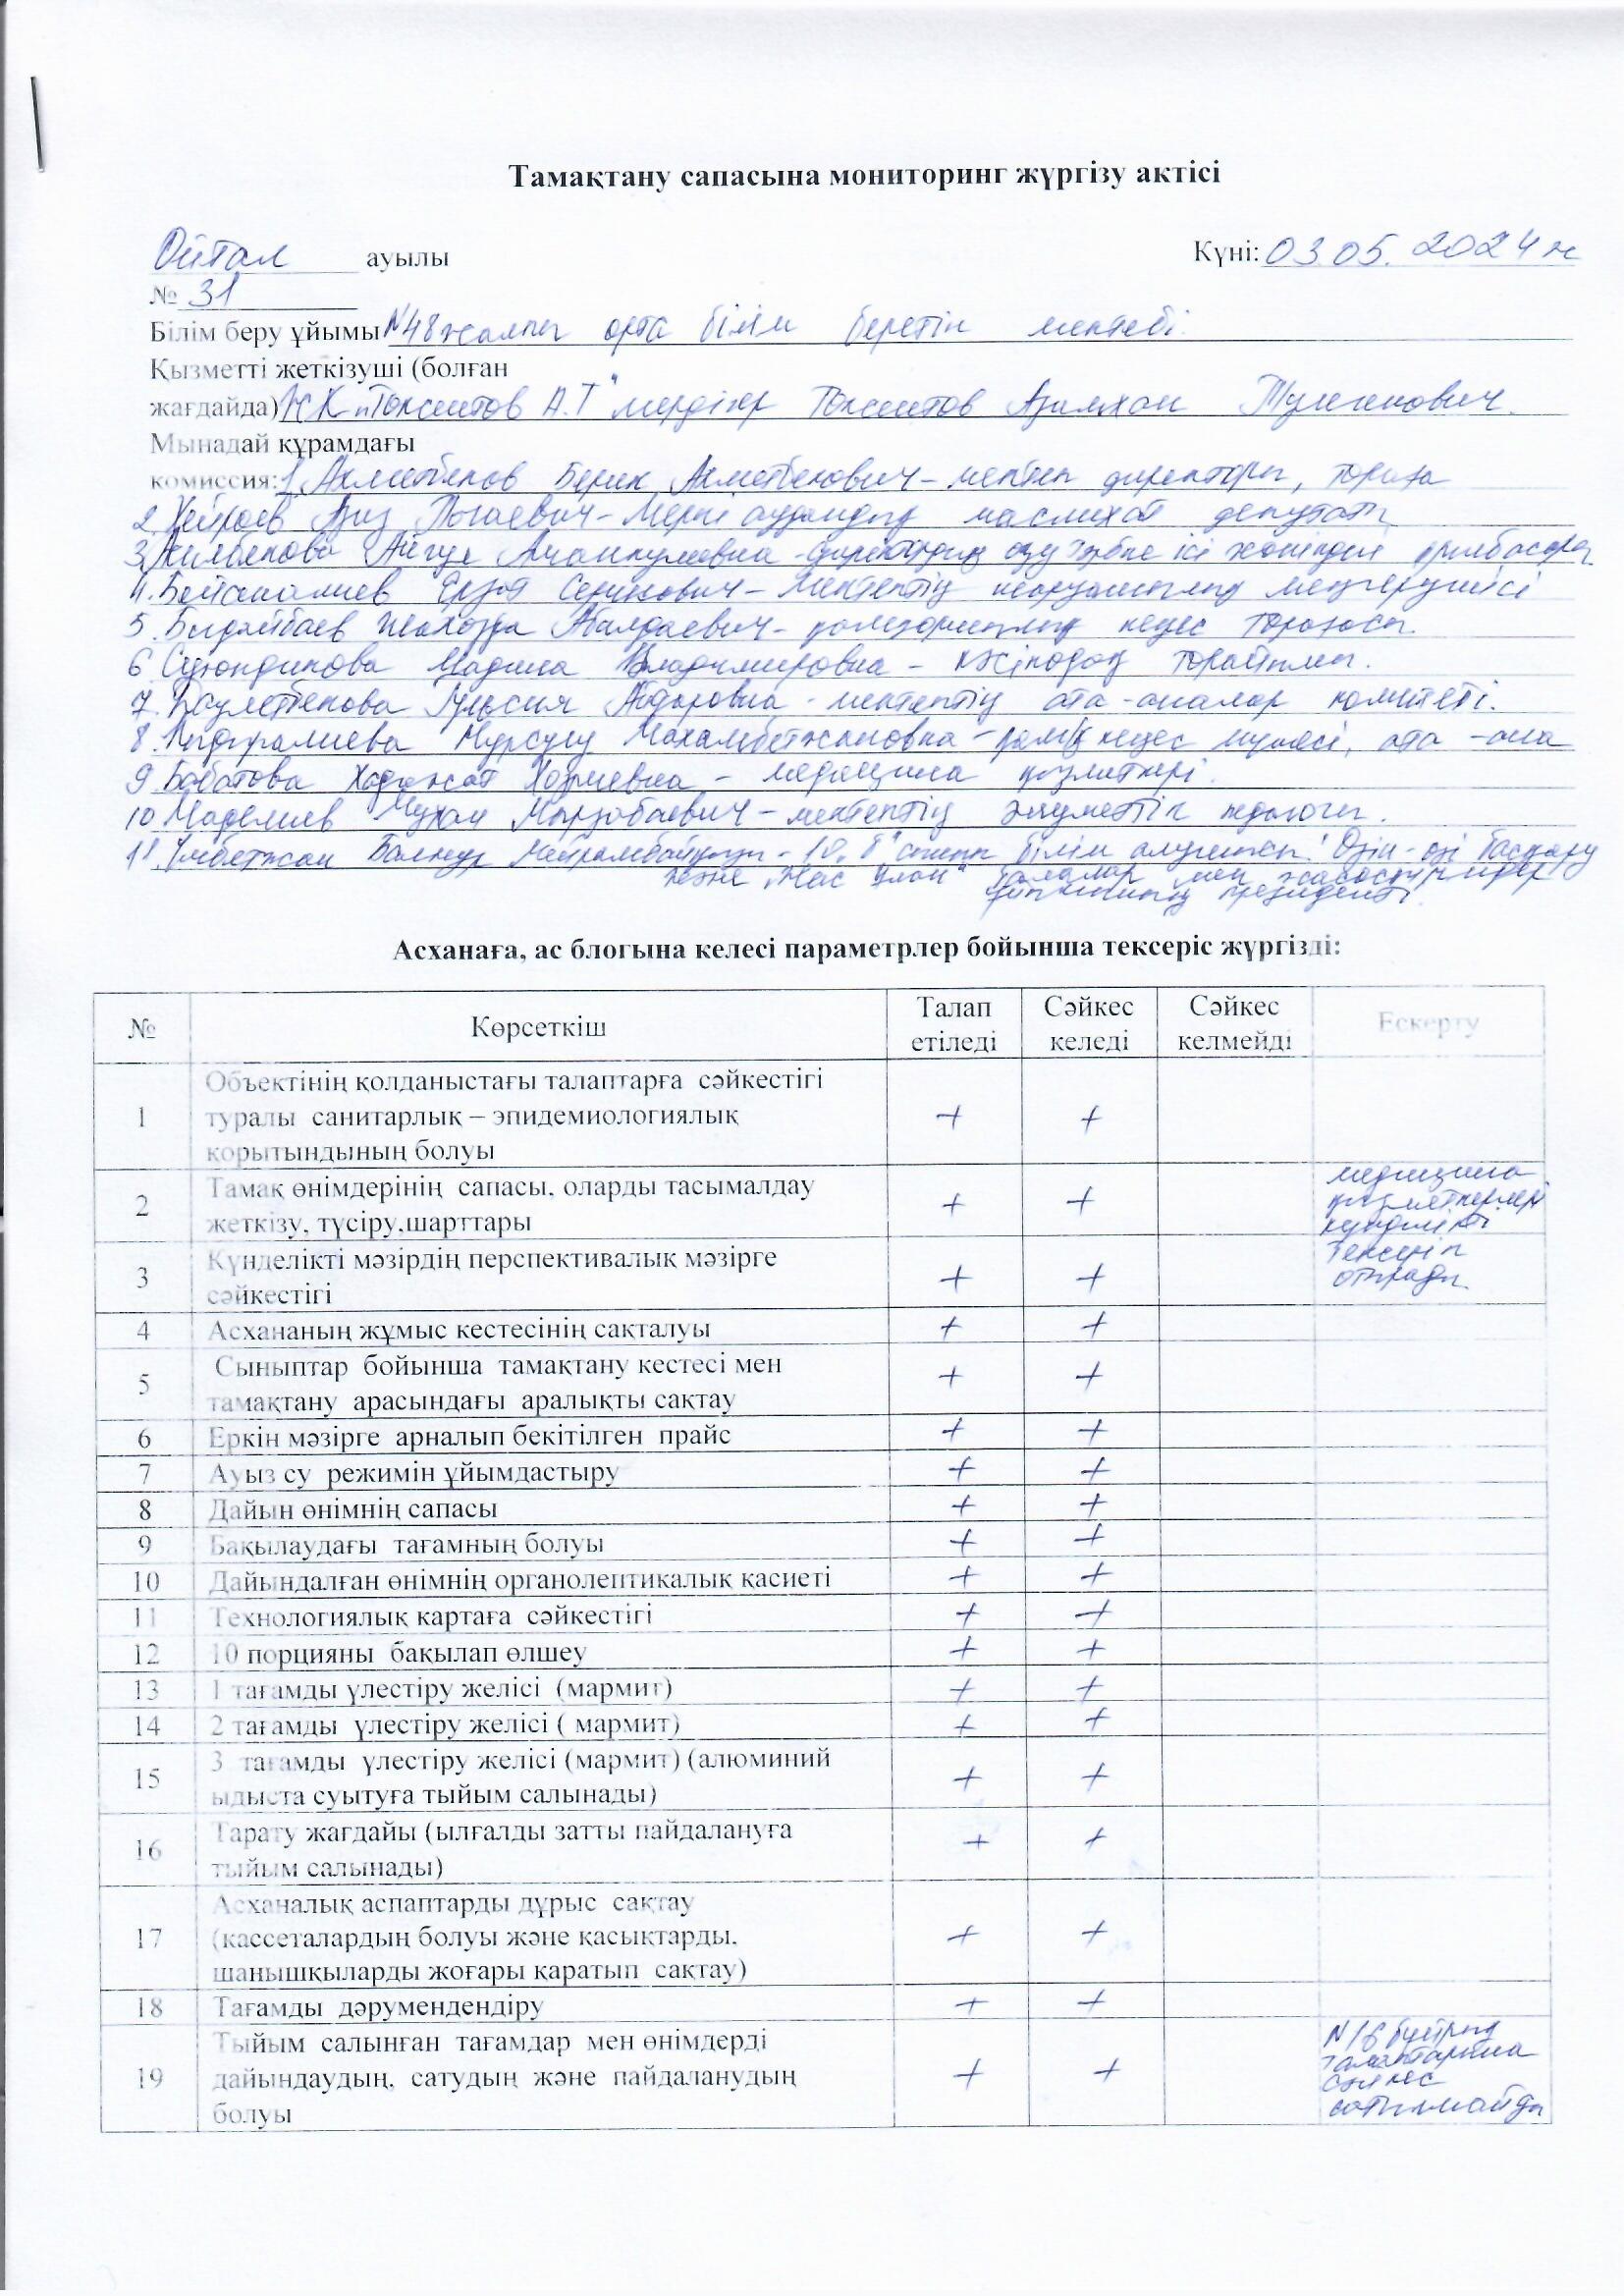 Тамақтану сапасына мониторинг жүргізу актісі
Ойтал ауылы Күні: 03.05.2024 ж
№ 31
Білім беру ұйымы N48 жалпы орта білім беретін мектебі.
Қызметті жеткізуші (болған
жағдайда) ЖК "Токсеитов А.Т" мердігер Токсеитов Тулегенович.
Мынадай құрамдағы
комиссия: 1. Ахметбеков Берик Ахметбекович - мектеп директоры, төраға
2. Азиз - Меркі аудандық маслихат депутаты
3. Айгул - директордың оқу ісі жөніндегі орынбасары
4. Бейсеналиев Ерзат Серикович - мектептің шаруашылық меңгерушісі
5. Абалдаевич - қамқоршылық кеңес төрағасы.
6. Мадина Владимировна - кәсіподақ төрайымы.
7. Даулетбекова Айдаровна - мектептің ата-аналар комитеті.
8. Нурсулу Махамбетжановна - кеңес мүшесі, ата-ана
9. Бабатова - медицина қызметкері.
10. Мырзабаевич - мектептің әлеуметтік педагогы.
11. Балнур - 10 "б" сынып білім алушысы. Өзін-өзі басқару
және "Жас ұлан" балалар мен жасөспірімдер
ұйымының президенті.
Асханаға, ас блогына келесі параметрлер бойынша тексеріс жүргізді:
№ Көрсеткіш Талап етіледі Сәйкес келеді Сәйкес келмейді Ескерту
1 Объектінің қолданыстағы талаптарға сәйкестігі
туралы санитарлық – эпидемиологиялық + +
қорытындының болуы
2 Тамақ өнімдерінің сапасы, оларды тасымалдау + + медицина қызметкерлері
жеткізу, түсіру,шарттары күнделікті
3 Күнделікті мәзірдің перспективалық мәзірге + + тексеріп
сәйкестігі отырады.
4 Асхананың жұмыс кестесінің сақталуы + +
5 Сыныптар бойынша тамақтану кестесі мен + +
тамақтану арасындағы аралықты сақтау
6 Еркін мәзірге арналып бекітілген прайс + +
7 Ауыз су режимін ұйымдастыру + +
8 Дайын өнімнің сапасы + +
9 Бақылаудағы тағамның болуы + +
10 Дайындалған өнімнің органолептикалық қасиеті + +
11 Технологиялық картаға сәйкестігі + +
12 10 порцияны бақылап өлшеу + +
13 1 тағамды үлестіру желісі (мармит) + +
14 2 тағамды үлестіру желісі ( мармит) + +
15 3 тағамды үлестіру желісі (мармит) (алюминий + +
ыдыста суытуға тыйым салынады)
16 Тарату жағдайы (ылғалды затты пайдалануға + +
тыйым салынады)
17 Асханалық аспаптарды дұрыс сақтау
(кассеталардың болуы және қасықтарды, + +
шанышқыларды жоғары қаратып сақтау)
18 Тағамды дәрумендендіру + +
19 Тыйым салынған тағамдар мен өнімдерді N16 бұйрық
дайындаудың, сатудың және пайдаланудың + + талаптарына сәйкес
болуы сатылмайды